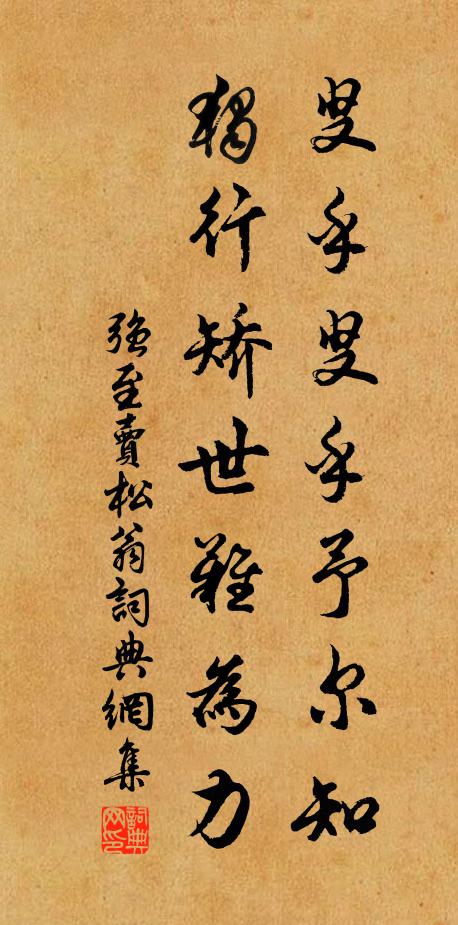 叟乎叟乎予尔知
独行矫世难為力
强至賣松翁詞典網集
詞典網印